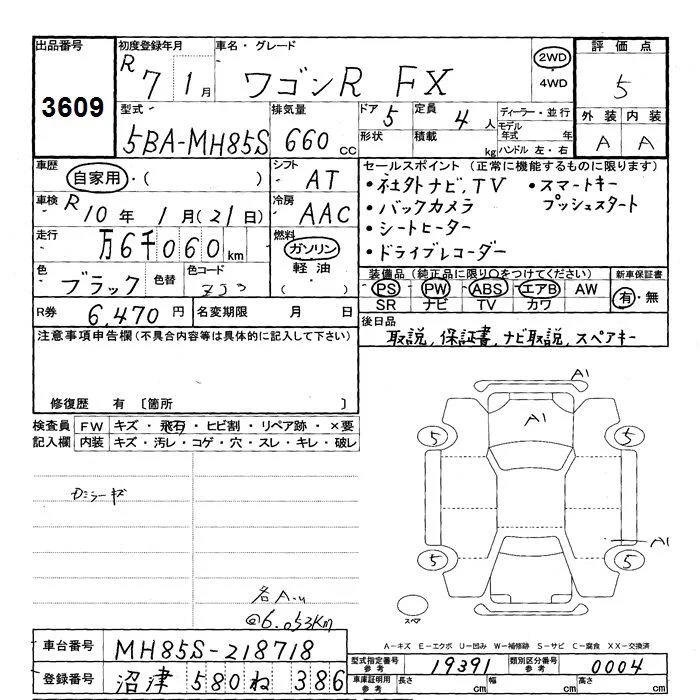 出品番号
3609
初度登録年月
R 7 1月
車名・グレード
ワゴンR FX
2WD
4WD
評価点
5
外装 内装
A A
型式
5BA-MH85S
排気量
660 cc
ドア 5
定員 4人
形状
積載 kg
ディーラー・並行
モデル年式 年
ハンドル 左・右
車歴
自家用・( )
シフト
AT
車検
R 10年 1月(21日)
冷房
AAC
走行
万6千060km
燃料
ガソリン
軽油
( )
色
ブラック
色替
色コード
ZJ3
R券
6,470円
名変期限 月 日
セールスポイント (正常に機能するものに限ります)
・社外ナビ、TV ・スマートキー
・バックカメラ プッシュスタート
・シートヒーター
・ドライブレコーダー
装備品 (純正品に限り○をつけてください)
PS PW ABS エアB AW
SR ナビ TV カワ
新車保証書
有・無
後日品
取説, 保証書, ナビ取説, スペアキー
注意事項申告欄(不具合内容等は具体的に記入して下さい)
修復歴 有 〔箇所 〕
検査員記入欄
FW キズ・飛石・ヒビ割・リペア跡・×要
内装 キズ・汚レ・コゲ・穴・スレ・キレ・破レ
Dミラーキズ
各A-u
@6.053Km
A1
A1
5
5
A1
5
5
スペア
A-キズ E-エクボ U-凹み W-補修跡 S-サビ C-腐食 XX-交換済
車台番号
MH85S-218718
登録番号
沼津 580 ね 386
型式指定番号
参考
19391
類別区分番号
参考
0004
車庫証明用
参考
長さ cm
幅 cm
高さ cm